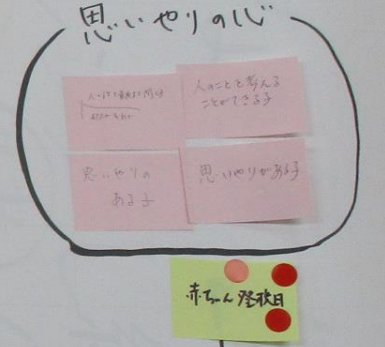 思いやりの心
人のことを考える
ことができる子
思いやりの
ある子
思いやりがある子
赤ちゃん登校日